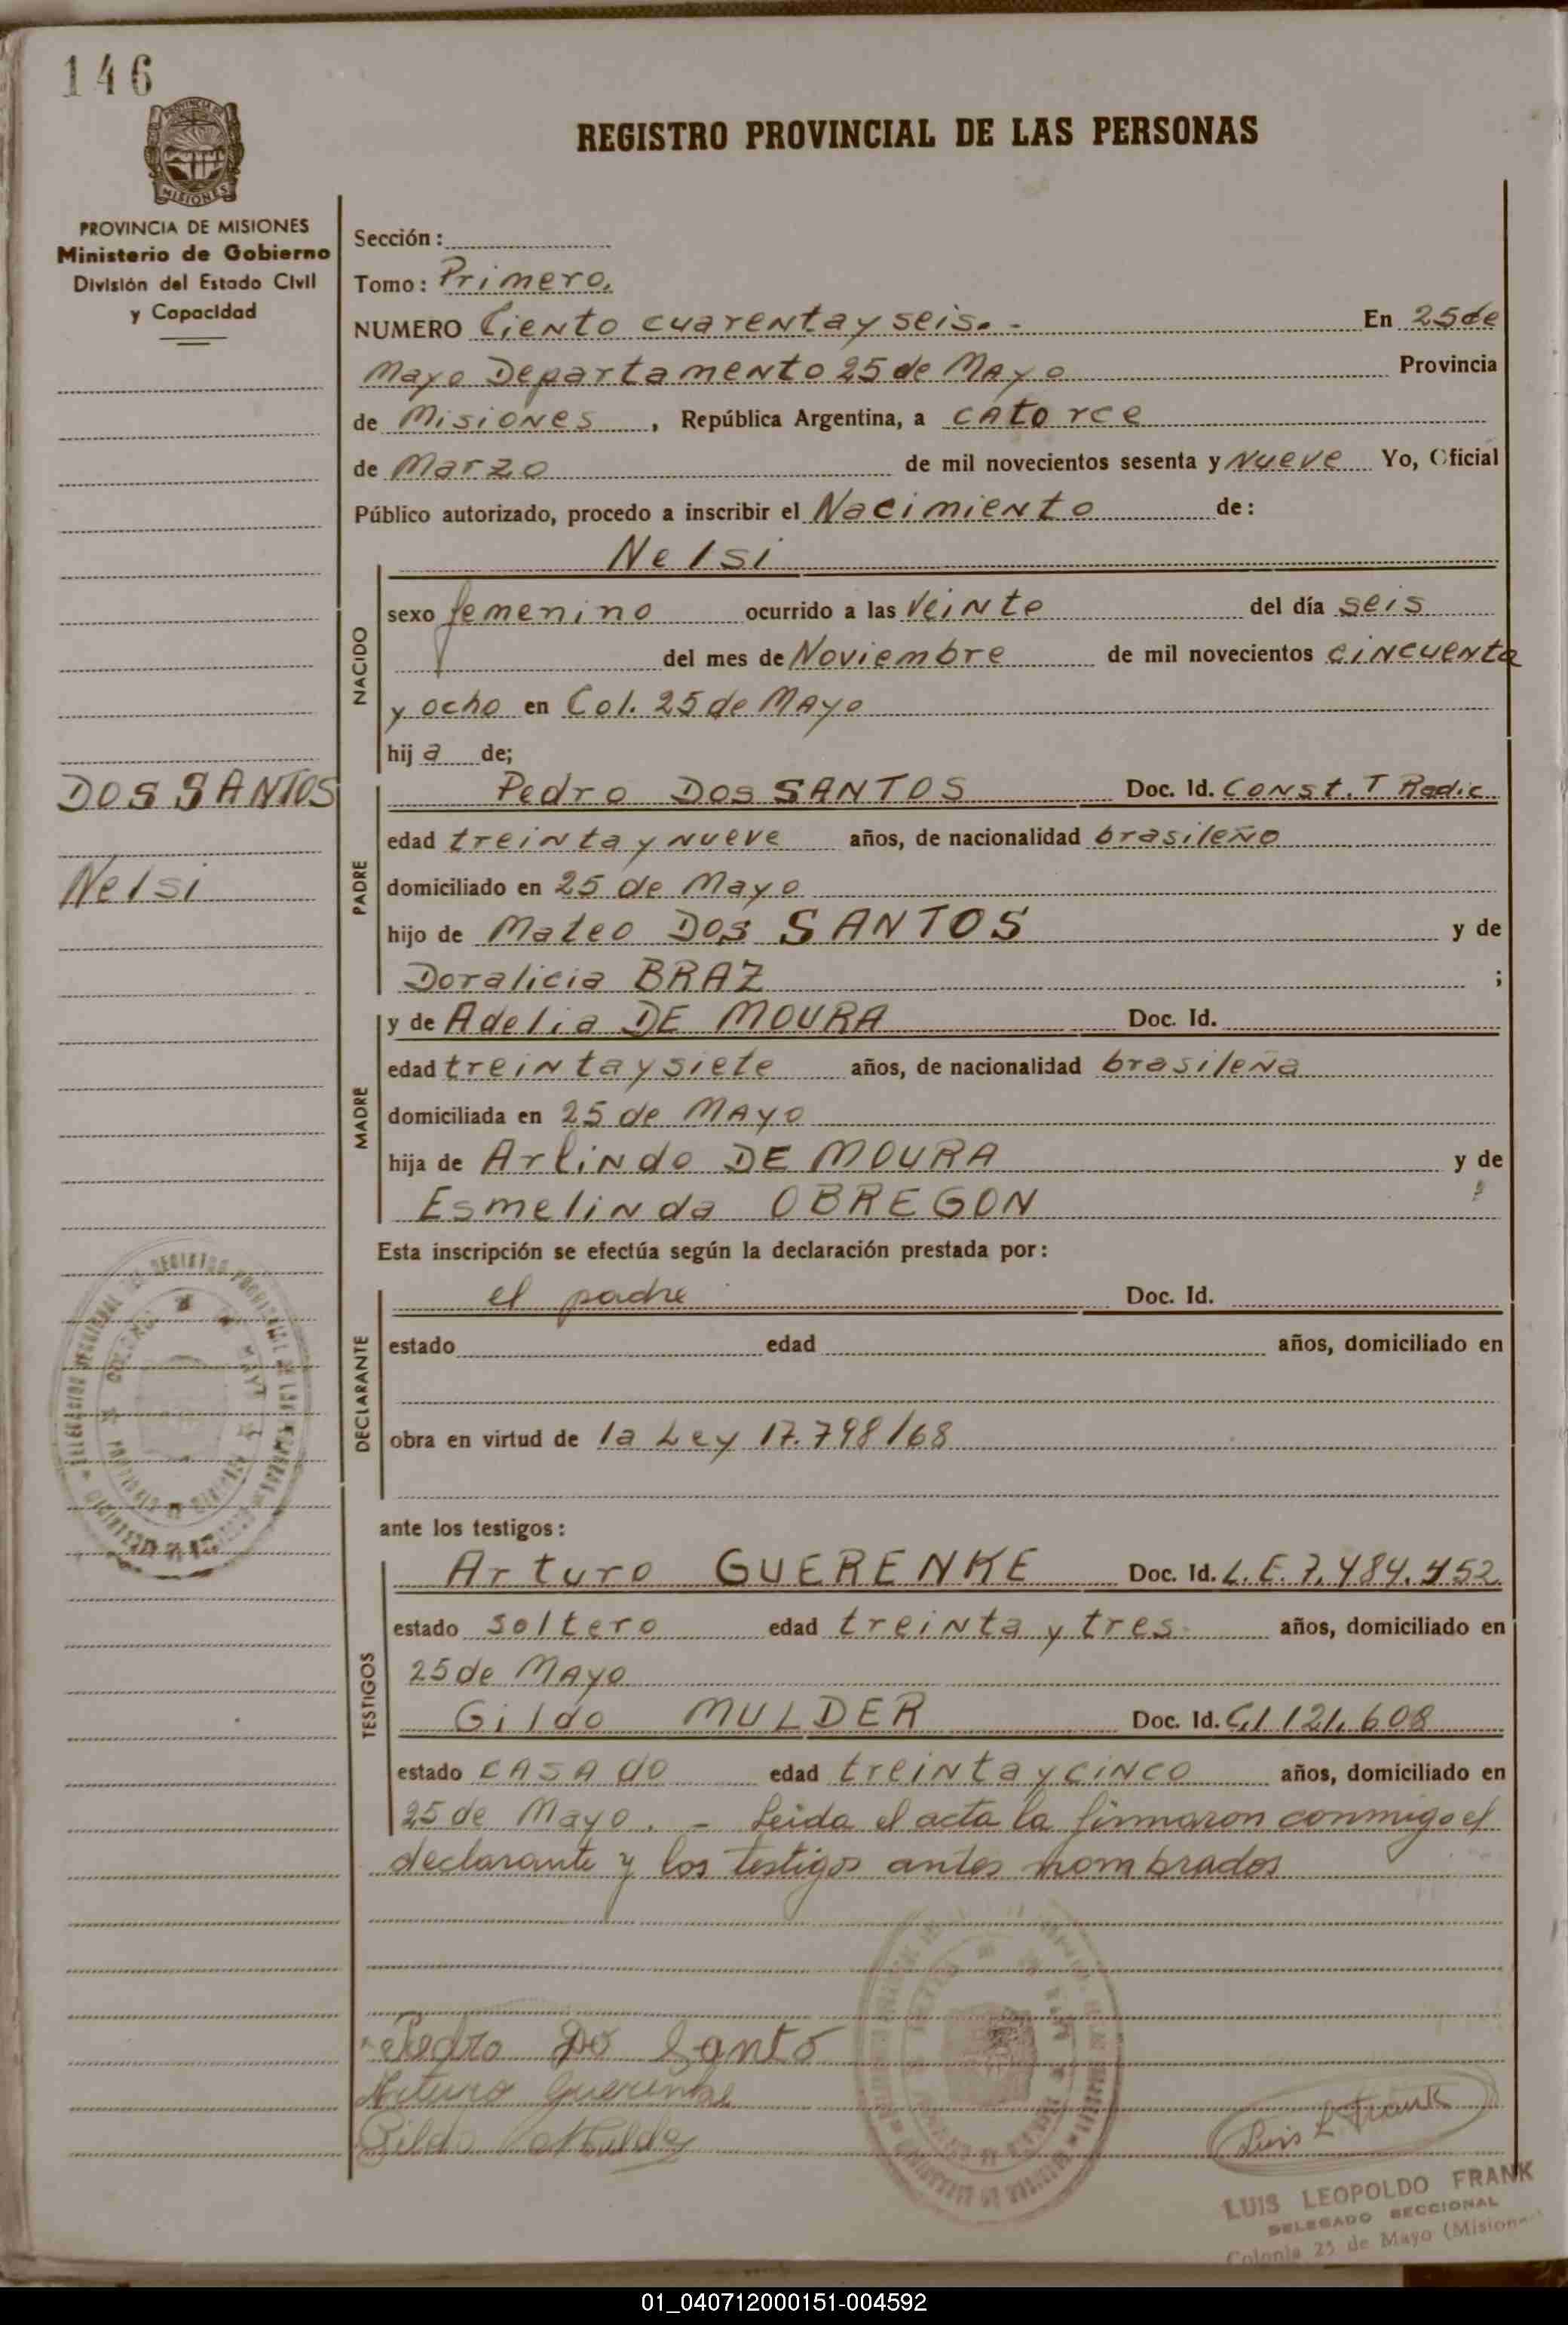 146
PROVINCIA DE
MISIONES
REGISTRO PROVINCIAL DE LAS PERSONAS
PROVINCIA DE MISIONES
Ministerio de Gobierno
División del Estado Civil
y Capacidad
Sección:
Tomo: Primero.
NUMERO Ciento cuarenta y seis.- En 25 de
Mayo Departamento 25 de Mayo Provincia
de Misiones, República Argentina, a catorce
de Marzo de mil novecientos sesenta y Nueve Yo, Oficial
Público autorizado, procedo a inscribir el Nacimiento de:
Nelsi
NACIDO
sexo femenino ocurrido a las Veinte del día seis
del mes de Noviembre de mil novecientos cincuenta
y ocho en Col. 25 de Mayo
hija de;
DOS SANTOS
Nelsi
PADRE
Pedro Dos SANTOS Doc. Id. Const. T Radic
edad treinta y nueve años, de nacionalidad brasileño
domiciliado en 25 de Mayo
hijo de Mateo Dos SANTOS y de
Doralicia BRAZ ;
MADRE
y de Adelia DE MOURA Doc. Id.
edad treinta y siete años, de nacionalidad brasileña
domiciliada en 25 de Mayo
hija de Arlindo DE MOURA y de
Esmelinda OBREGON
Esta inscripción se efectúa según la declaración prestada por:
DECLARANTE
el padre Doc. Id.
estado edad años, domiciliado en
obra en virtud de la Ley 17.798/68
ante los testigos:
TESTIGOS
Arturo GUERENKE Doc. Id. L.E. 7.484.452
estado soltero edad treinta y tres años, domiciliado en
25 de Mayo
Gildo MULDER Doc. Id. C.I 121.608
estado CASAdo edad treinta y cinco años, domiciliado en
25 de Mayo. - Leida el acta la firmaron conmigo el
declarante y los testigos antes nombrados
Pedro Do Santo
Arturo Guerenke
Gildo Mulder
Luis L Frank
LUIS LEOPOLDO FRANK
DELEGADO SECCIONAL
Colonia 25 de Mayo (Mision
01_040712000151-004592